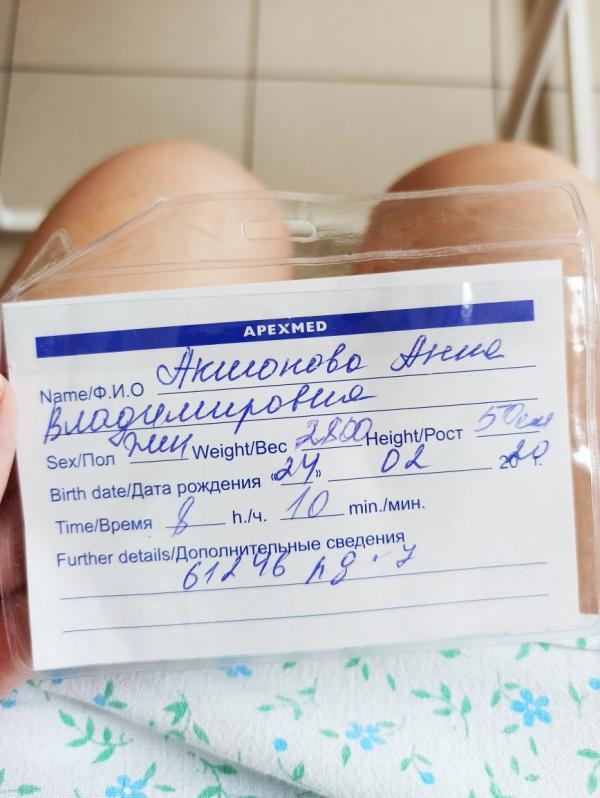 APEXMED
Name/Ф.И.О Акшонова Анна
Владимировна
Sex/Пол жен Weight/Вес 2800 Height/Рост 50см
Birth date/Дата рождения «24» 02 2020 г.
Time/Время 8 h./ч. 10 min./мин.
Further details/Дополнительные сведения
61246